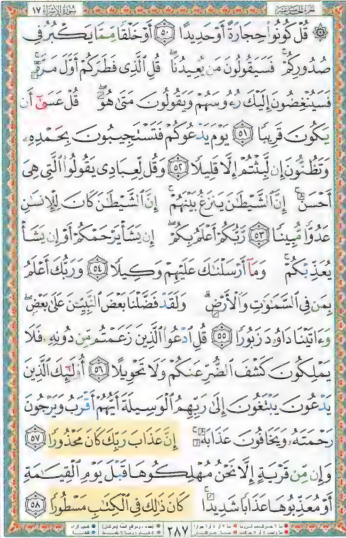 سورة الإسراء ١٧
۞ قُلْ كُونُوا حِجَارَةً أَوْ حَدِيدًا ﴿٥٠﴾ أَوْ خَلْقًا مِّمَّا يَكْبُرُ فِى
صُدُورِكُمْ فَسَيَقُولُونَ مَن يُعِيدُنَا قُلِ الَّذِى فَطَرَكُمْ أَوَّلَ مَرَّةٍ
فَسَيُنْغِضُونَ إِلَيْكَ رُءُوسَهُمْ وَيَقُولُونَ مَتَىٰ هُوَ قُلْ عَسَىٰ أَن
يَكُونَ قَرِيبًا ﴿٥١﴾ يَوْمَ يَدْعُوكُمْ فَتَسْتَجِيبُونَ بِحَمْدِهِ
وَتَظُنُّونَ إِن لَّبِثْتُمْ إِلَّا قَلِيلًا ﴿٥٢﴾ وَقُل لِّعِبَادِى يَقُولُوا الَّتِى هِىَ
أَحْسَنُ إِنَّ الشَّيْطَٰنَ يَنزَغُ بَيْنَهُمْ إِنَّ الشَّيْطَٰنَ كَانَ لِلْإِنسَٰنِ
عَدُوًّا مُّبِينًا ﴿٥٣﴾ رَّبُّكُمْ أَعْلَمُ بِكُمْ إِن يَشَأْ يَرْحَمْكُمْ أَوْ إِن يَشَأْ
يُعَذِّبْكُمْ وَمَا أَرْسَلْنَٰكَ عَلَيْهِمْ وَكِيلًا ﴿٥٤﴾ وَرَبُّكَ أَعْلَمُ
بِمَن فِى السَّمَٰوَٰتِ وَالْأَرْضِ وَلَقَدْ فَضَّلْنَا بَعْضَ النَّبِيِّۦنَ عَلَىٰ بَعْضٍ
وَءَاتَيْنَا دَاوُۥدَ زَبُورًا ﴿٥٥﴾ قُلِ ادْعُوا الَّذِينَ زَعَمْتُم مِّن دُونِهِ فَلَا
يَمْلِكُونَ كَشْفَ الضُّرِّ عَنكُمْ وَلَا تَحْوِيلًا ﴿٥٦﴾ أُولَٰئِكَ الَّذِينَ
يَدْعُونَ يَبْتَغُونَ إِلَىٰ رَبِّهِمُ الْوَسِيلَةَ أَيُّهُمْ أَقْرَبُ وَيَرْجُونَ
رَحْمَتَهُۥ وَيَخَافُونَ عَذَابَهُ إِنَّ عَذَابَ رَبِّكَ كَانَ مَحْذُورًا ﴿٥٧﴾
وَإِن مِّن قَرْيَةٍ إِلَّا نَحْنُ مُهْلِكُوهَا قَبْلَ يَوْمِ الْقِيَٰمَةِ
أَوْ مُعَذِّبُوهَا عَذَابًا شَدِيدًا كَانَ ذَٰلِكَ فِى الْكِتَٰبِ مَسْطُورًا ﴿٥٨﴾
٢٨٧